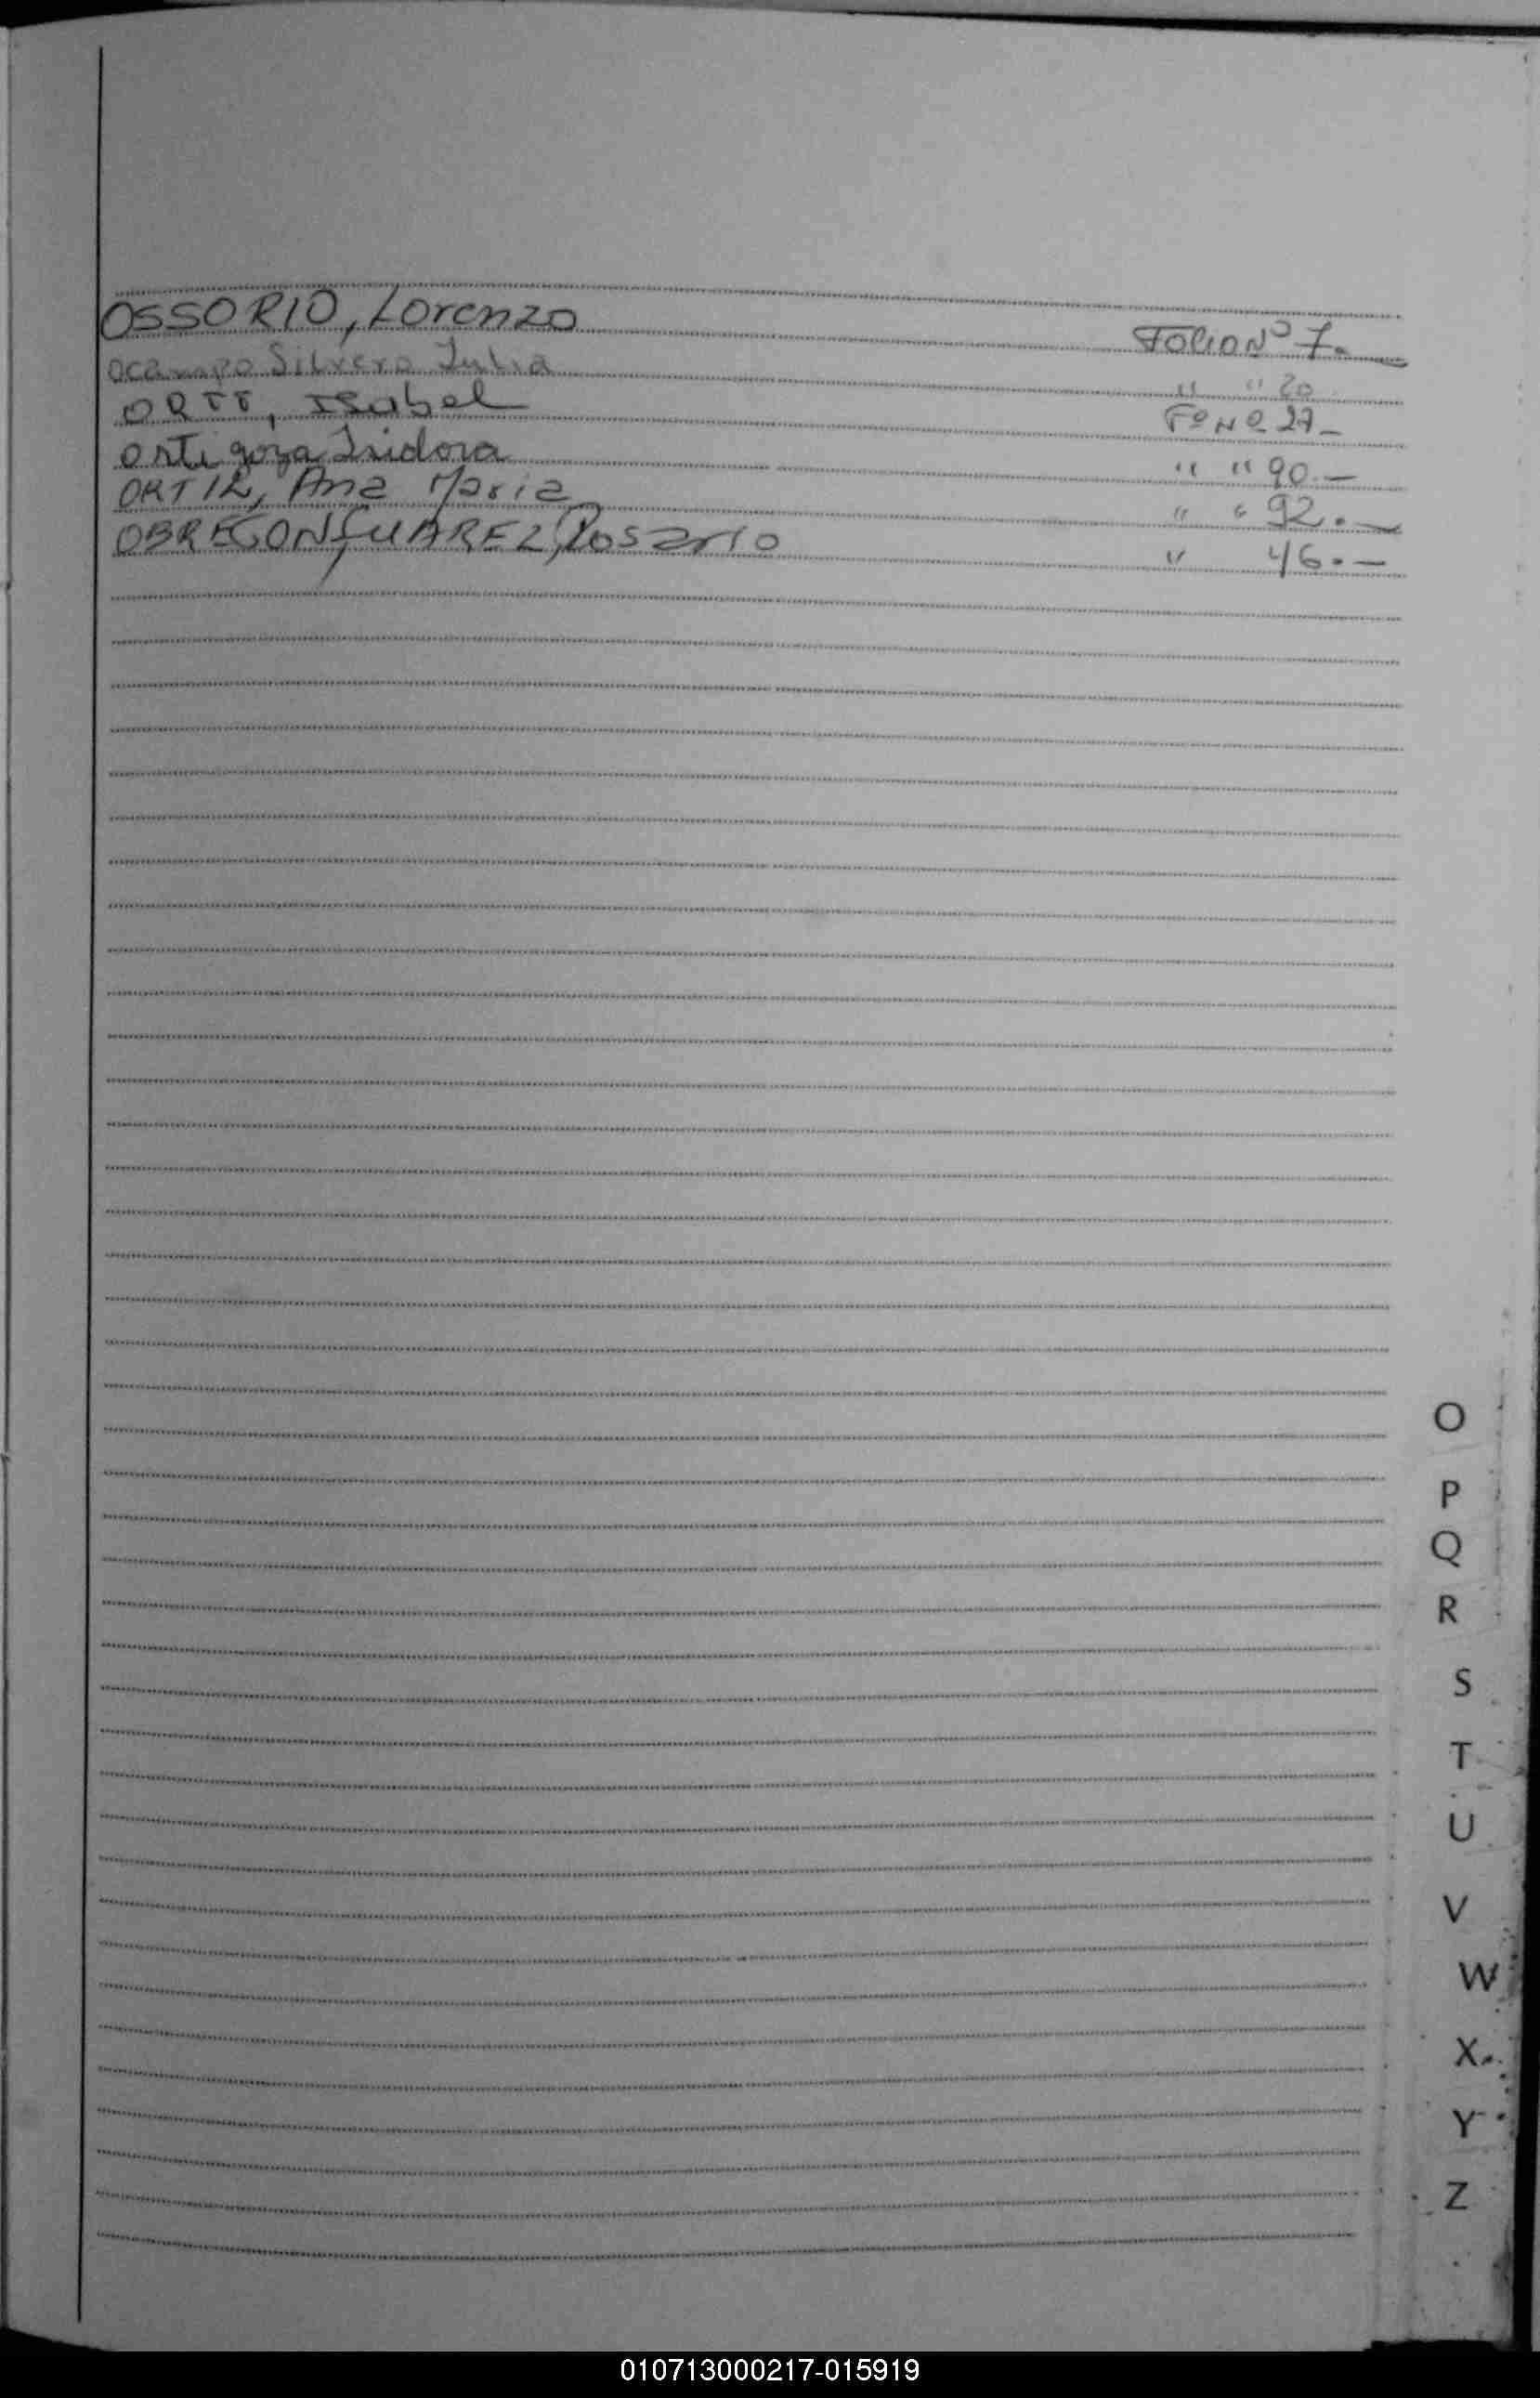 OSSORIO, Lorenzo FOLIO Nº 7.
Ocampo Silvero Julia " " 20
ORTT, Isabel Fº Nº 27-
Ortigoza Isidora " " 90.-
ORTIZ, Ana Maria " " 92.-
OBREGON SUAREZ, Rosario " 46.-
O
P
Q
R
S
T
U
V
W
X
Y
Z
010713000217-015919